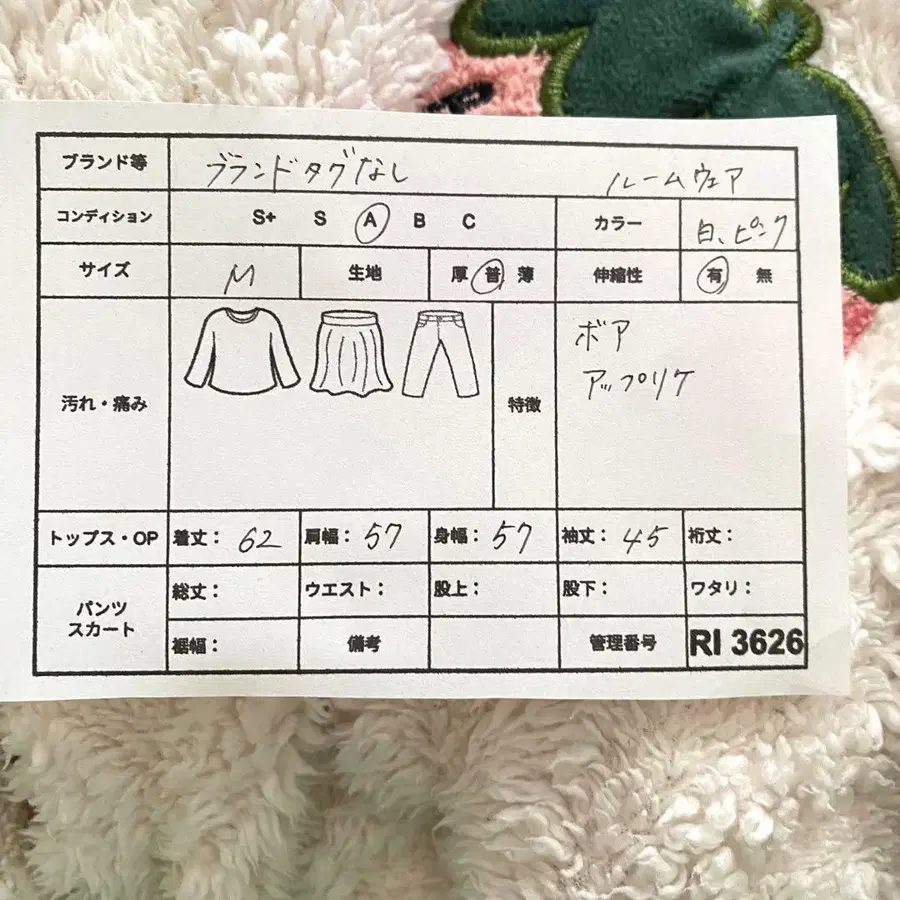 ブランド等 ブランドタグなし ルームウェア
コンディション S+ S A B C カラー 白、ピンク
サイズ M 生地 厚 普 薄 伸縮性 有 無
汚れ・痛み 特徴 ボア
アップリケ
トップス・OP 着丈： 62 肩幅： 57 身幅： 57 袖丈： 45 裄丈：
パンツ
スカート
総丈： ウエスト： 股上： 股下： ワタリ：
裾幅： 備考 管理番号 RI 3626